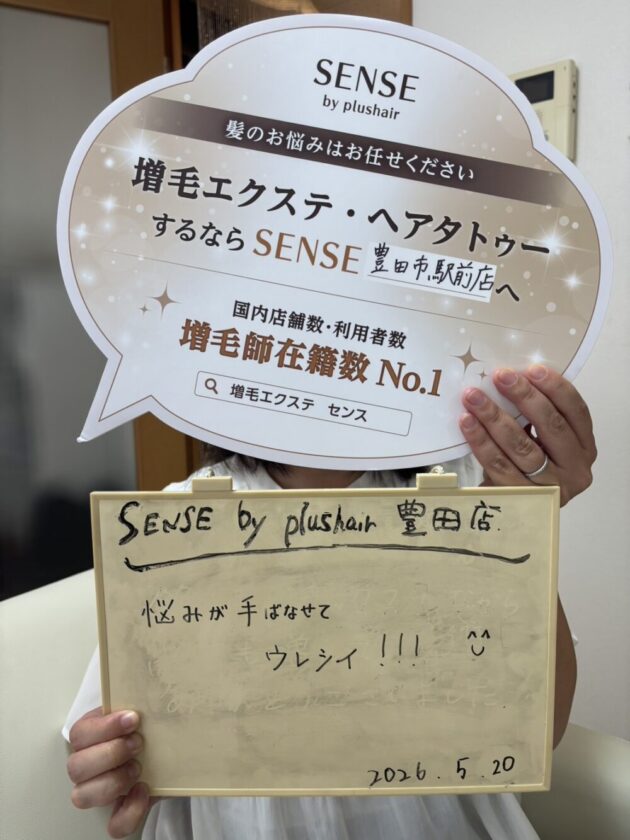 SENSE
by plushair
髪のお悩みはお任せください
増毛エクステ・ヘアタトゥー
するなら SENSE 豊田市駅前店へ
国内店舗数・利用者数
増毛師在籍数 No.1
増毛エクステ センス
SENSE by plushair 豊田店.
悩みが手ばなせて
ウレシイ!!!
2026.5.20